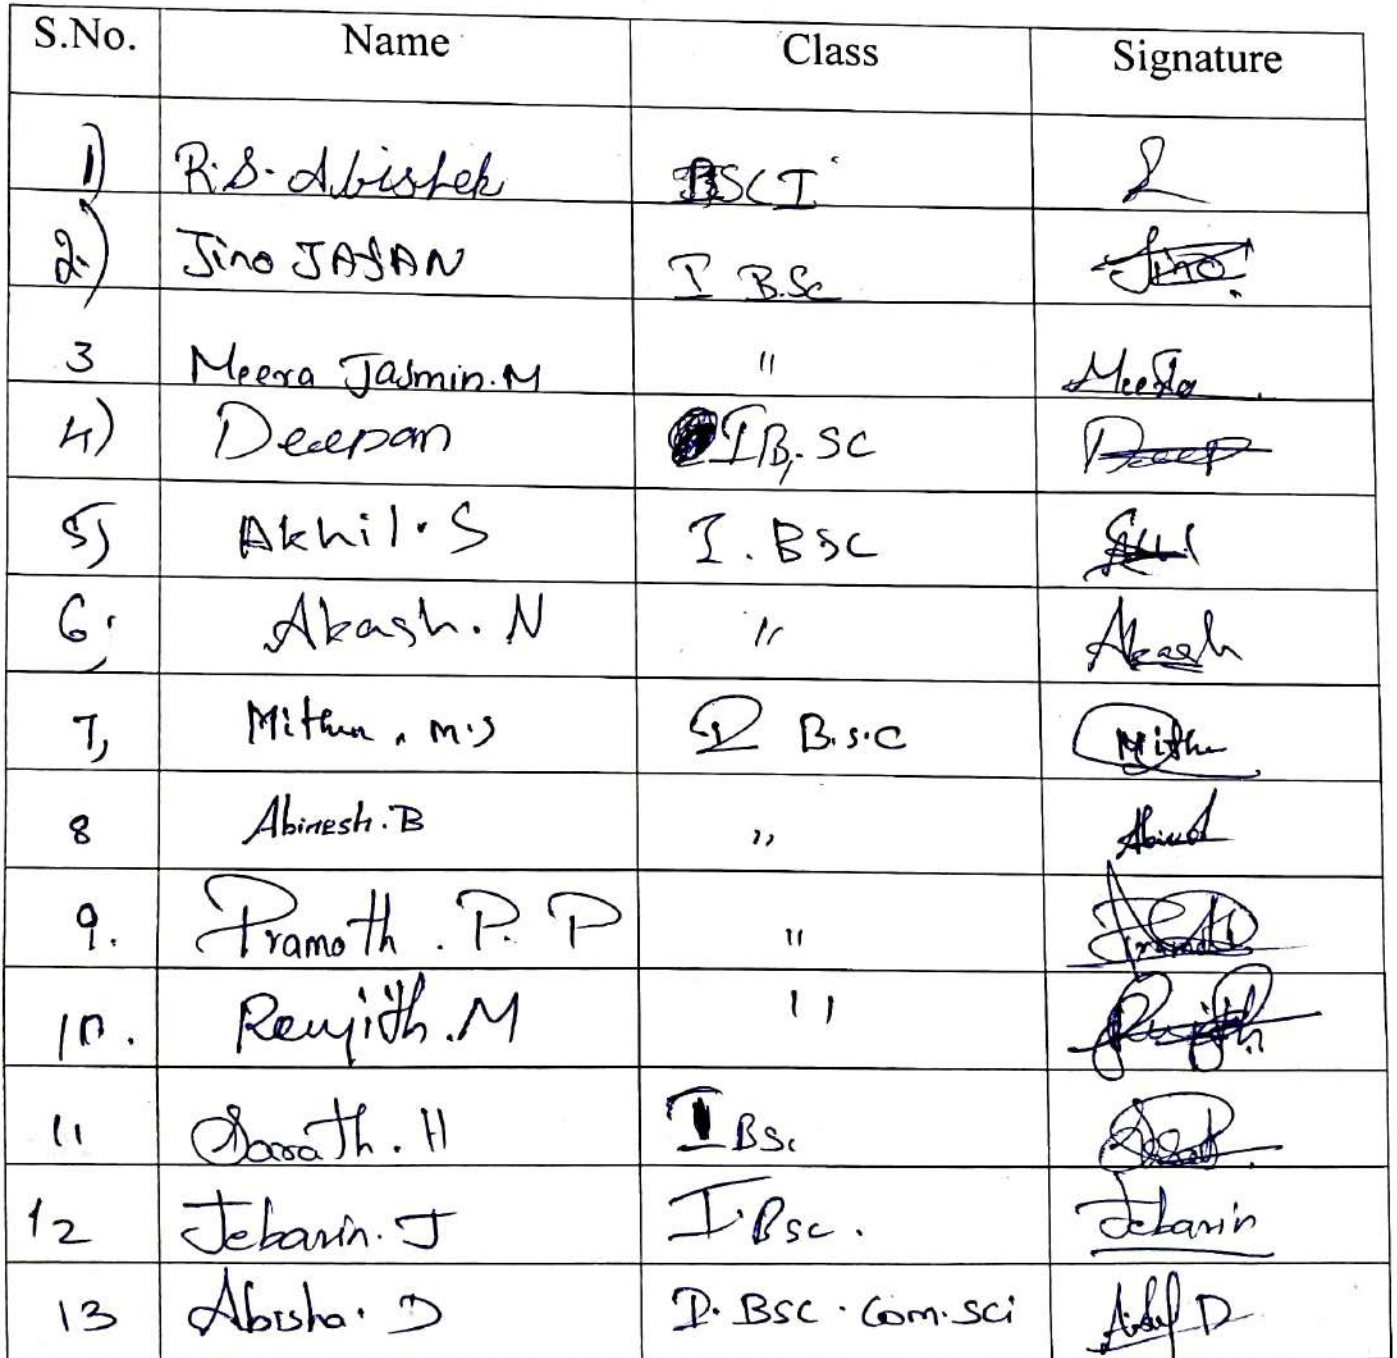 S.No. Name Class Signature
1) R.S. Abishek BSC I
2.) Jino JASAN I B.Sc Jino
3 Meera Jasmin.M " Meera
4) Deepan I B.SC Deep
5) Akhil.S I. BSC Akhil
6. Akash. N " Akash
7, Mithun. M.S I B.S.C Mithu
8 Abinesh.B "
9. Pramoth. P. P " Pramoth
10. Renjith.M " Renjith
11 Sarath. H I BSc
12 Jebarin. J I. Bsc. Jebarin
13 Abisha. D I. BSC. Com. Sci